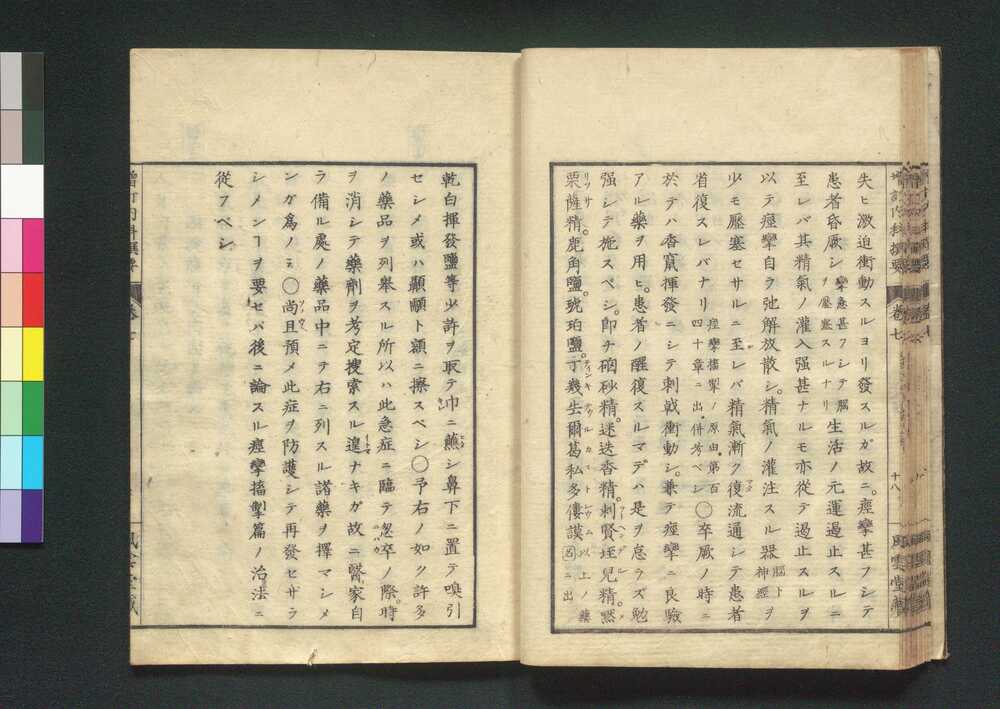 失ヒ激迫衝動スルヨリ發スルガ故ニ。痙攣甚フシテ
患者昏厥シ攣急甚フシテ腦ヲ壓塞スルナリ生活ノ元運過止スルニ
至レバ其精氣ノ灌入强甚ナルモ亦從テ過止スルヲ
以テ痙攣自ラ弛解放散シ。精氣ノ灌注スル器腦ト神經ヲ
少モ壓塞セサルニ至レバ精氣漸ク復流通シテ患者
省復スレバナリ痙攣搐掣ノ原由第百四十章ニ出併考ベシ〇卒厥ノ時ニ
於テハ香竄揮發ニシテ刺戟衝動シ。兼テ痙攣ニ良驗
アル藥ヲ用ヒ。患者ノ醒復スルマデハ是ヲ怠ラズ勉
强シテ施スベシ。即チ硇砂精。迷迭香精。刺賢垤兒精。黙
栗薩精。鹿角鹽。琥珀鹽。丁幾生爾葛私多僂謨以上ノ藥名ニ出
乾白揮發鹽等少許ヲ取テ巾ニ蘸シ鼻下ニ置テ嗅引
セシメ或ハ顳顬ト額ニ擦スベシ〇予右ノ如ク許多
ノ藥品ヲ列舉スル所以ハ此急症ニ臨テ怱卒ノ際。時
ヲ消シテ藥劑ヲ考定搜索スル遑ナキガ故ニ醫家自
ラ備ル處ノ藥品中ニテ右ニ列スル諸藥ヲ擇マシメ
ンガ爲ノミ〇尚且預メ此症ヲ防護シテ再發セザラ
シメンヿヲ要セバ後ニ論スル痙攣搐掣篇ノ治法ニ
從フベシ